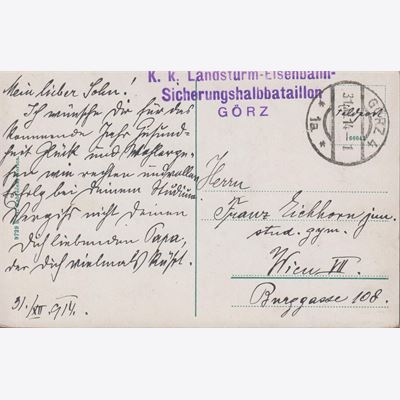 K. k. Landsturm-Eisenbahn-
Sicherungshalbbataillon
GÖRZ
GÖRZ 4
31.XII.14
* 1a *
Feldpost
Mein lieber Sohn!
Ich wünsche dir für das
kommende Jahr Gesund-
heit Glück und Wohlerge-
hen
Erfolg bei deinem Studium
Vergiss nicht deinen
Dich liebenden Papa,
der Dich vielmals küsst.
31./XII 914.
Herrn
Franz Eichhorn jun.
stud. gym.
Wien VII.
Burggasse 108.